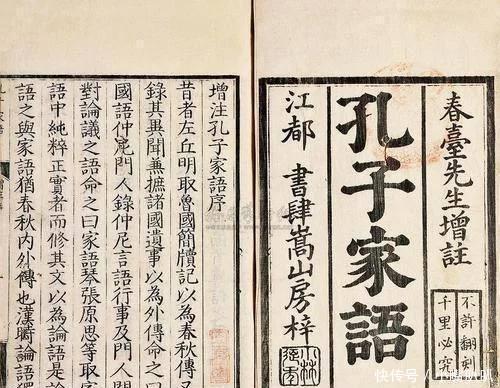 春臺先生增註
不許翻刻
千里必究
孔子家語
江都 書肆嵩山房梓
增注孔子家語序
昔者左丘明取魯國簡牘記以為春秋傳又
錄其異聞兼摭諸國遺事以為外傳命之曰
國語仲尼門人錄仲尼言語行事及門人
對論議之語命之曰家語琴張原思等取家
語中純粹正實者而修其文以為論語是論
語之與家語猶春秋內外傳也漢時論語獨
快传号